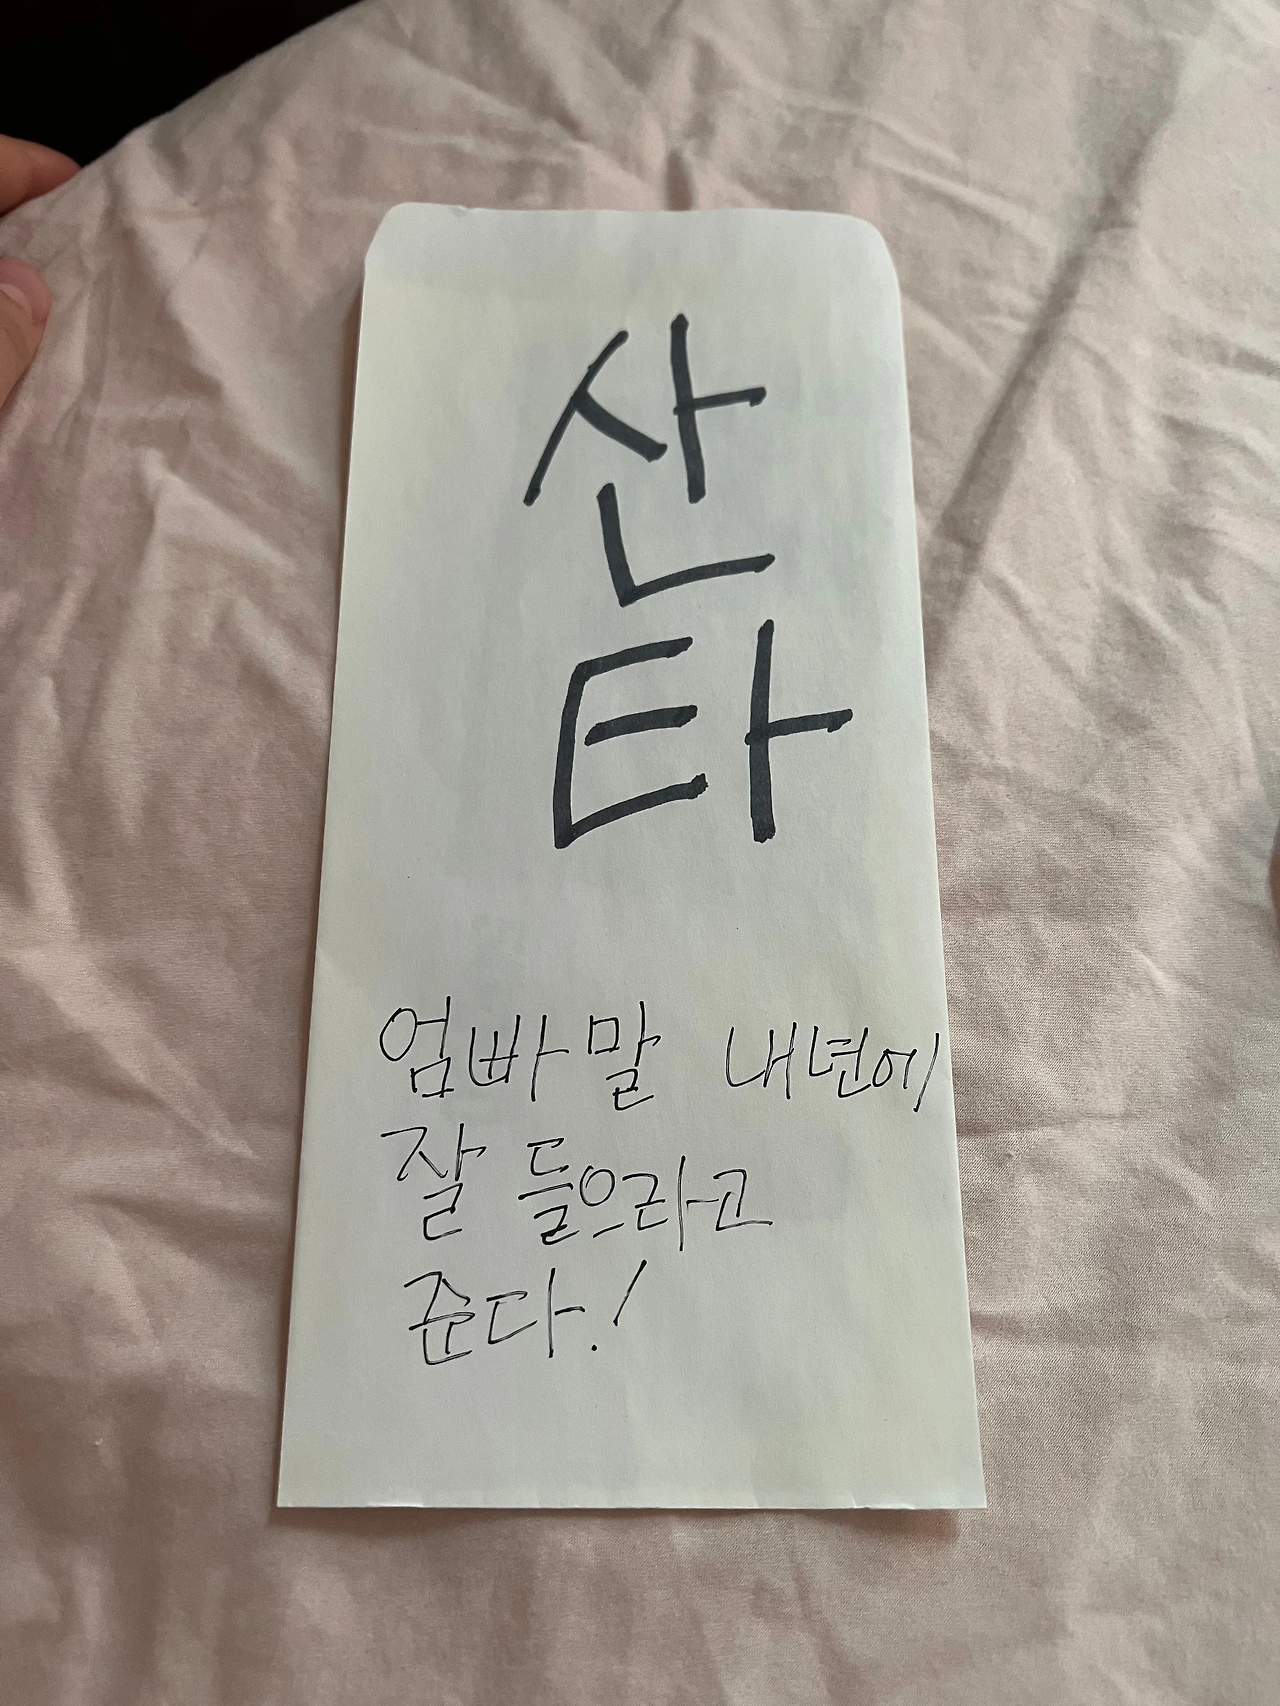 산
타
엄빠말 내년에
잘 들으라고
준다!